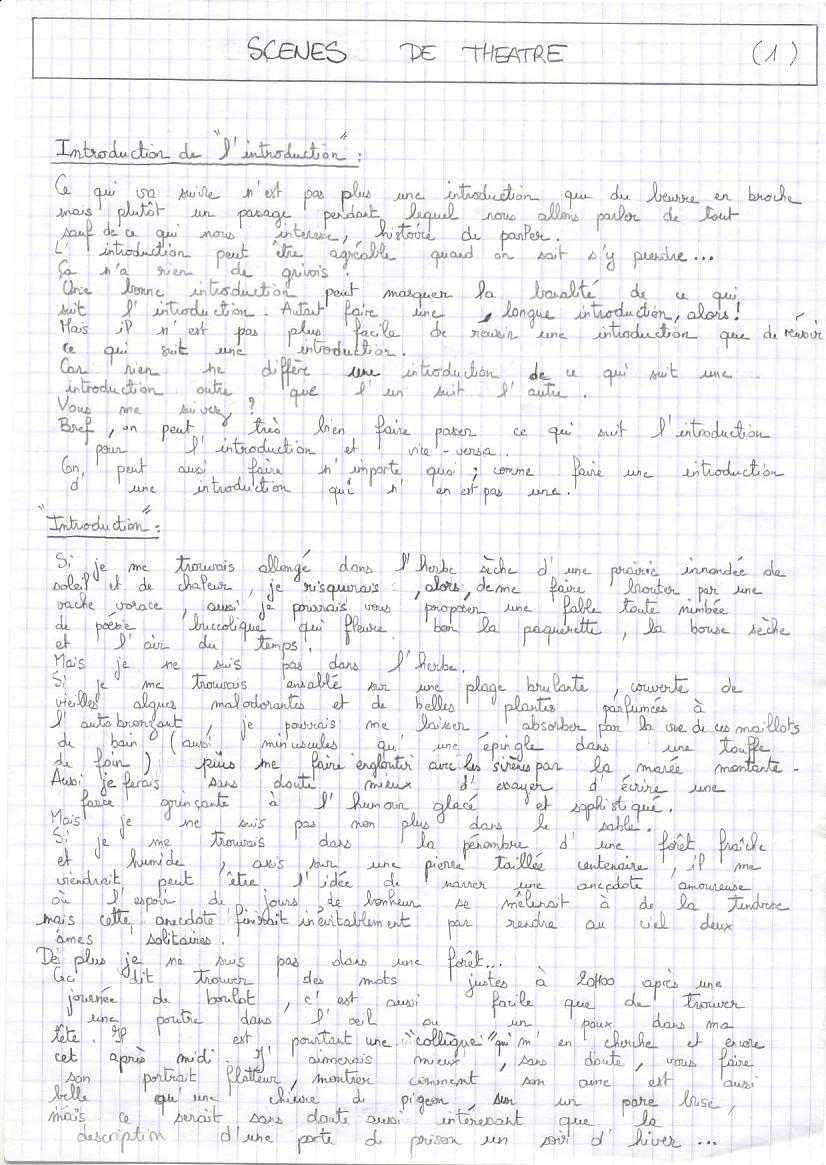 SCENES DE THEATRE (1)
Introduction de "l'introduction" :
Ce qui va suivre n'est pas plus une introduction que du beurre en broche
mais plutôt un passage pendant lequel nous allons parler de tout
sauf de ce qui nous interesse, histoire de parler.
L'introduction peut être agréable quand on sait s'y prendre...
Ça n'a rien de grivois.
Une bonne introduction peut masquer la banalité de ce qui
suit l'introduction. Autant faire une longue introduction, alors!
Mais il n'est pas plus facile de réussir une introduction que de réussir
ce qui suit une introduction.
Car rien ne diffère une introduction de ce qui suit une
introduction outre que l'un suit l'autre.
Vous me suivez ?
Bref, on peut très bien faire passer ce qui suit l'introduction
pour l'introduction et vice-versa.
On peut aussi faire n'importe quoi ; comme faire une introduction
d'une introduction qui n'en est pas une.
"Introduction" :
Si je me trouvais allongé dans l'herbe sèche d'une prairie innondée de
soleil et de chaleur, je risquerais, alors, de me faire brouter par une
vache vorace, aussi je pourrais vous proposer une fable toute nimbée
de poésie buccolique qui fleure bon la paquerette, la bouse sèche
et l'air du temps.
Mais je ne suis pas dans l'herbe.
Si je me trouvais ensablé sur une plage brulante, couverte de
vieilles algues malodorantes et de belles plantes parfumées à
l'autobronzant, je pourrais me laisser absorber par la vue de ces maillots
de bain (aussi minuscules qu'une épingle dans une touffe
de foin) puis me faire engloutir avec les sirènes par la marée montante.
Aussi je ferais sans doute mieux d'essayer d'écrire une
farce grinçante à l'humour glacé et sophistiqué.
Mais je ne suis pas non plus dans le sable.
Si je me trouvais dans la pénombre d'une forêt fraîche
et humide, assis sur une pierre taillée centenaire, il me
viendrait peut être l'idée de narrer une anecdote amoureuse
où l'espoir de jours de bonheur se mêlerait à de la tendresse
mais cette anecdote finirait inévitablement par rendre au ciel deux
âmes solitaires.
De plus je ne suis pas dans une forêt...
Ceci dit trouver des mots justes à 20H00 après une
journée de boulot, c'est aussi facile que de trouver
une poutre dans l'œil ou un poux dans ma
tête. Il est pourtant une "collègue" qui m'en cherche et encore
cet après midi. J'aimerais mieux, sans doute, vous faire
son portrait flatteur, montrer comment son ame est aussi
belle qu'une chiure de pigeon sur un pare brise,
mais ce serait sans doute aussi intéressant que la
description d'une porte de prison un soir d'hiver...